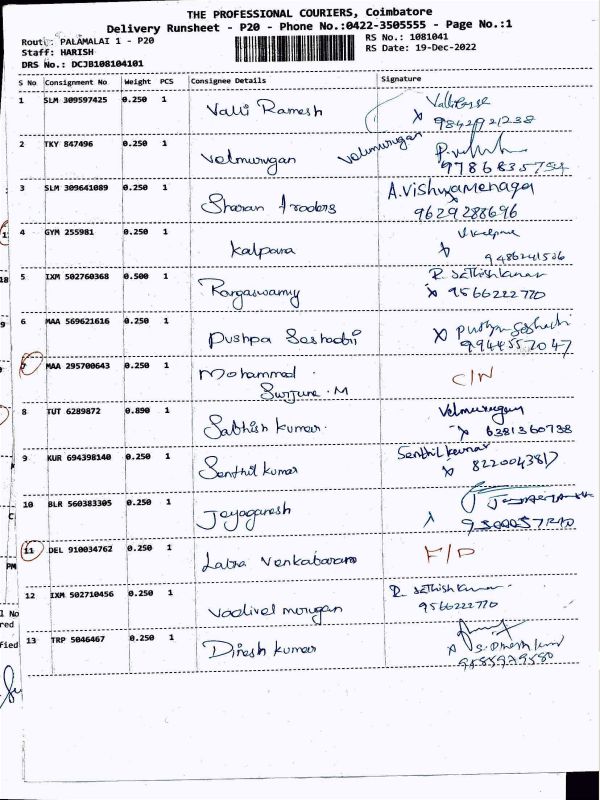 THE PROFESSIONAL COURIERS, Coimbatore
Delivery Runsheet - P20 - Phone No.:0422-3505555 - Page No.:1
Route: PALAMALAI 1 - P20
RS No.: 1081041
Staff: HARISH
RS Date: 19-Dec-2022
DRS No.: DCJB108104101
S No Consignment No Weight PCS Consignee Details Signature
1 SLM 309597425 0.250 1 Valli Ramesh
9842921238
2 TKY 847496 0.250 1 Velmurugan Velmurugan
9786835754
3 SLM 309641089 0.250 1 Sharan Traders A.Vishwamenaga
9629288696
4 GYM 255981 0.250 1 Kalpana V Kalpana
9486241506
5 IXM 502760368 0.500 1 Rangaswamy R. Sathish Kumar
9566222770
6 MAA 569621616 0.250 1 Pushpa Seshadri Pushpa Seshadri
9944557047
7 MAA 295700643 0.250 1 Mohammed C/N
Surjune . M
8 TUT 6289872 0.890 1 Sathish Kumar. Velmurugan
6381360738
9 KUR 694398140 0.250 1 Senthil Kumar Senthil Kumar
8220043817
10 BLR 560383305 0.250 1 Jeyaganesh
11 DEL 910034762 0.250 1 Latha Venkataraman F/D
12 IXM 502710456 0.250 1 Vadivel murugan R. Sathish Kumar
9566222770
13 TRP 5046467 0.250 1 Dinesh Kumar S. Dinesh Kumar
9585979580